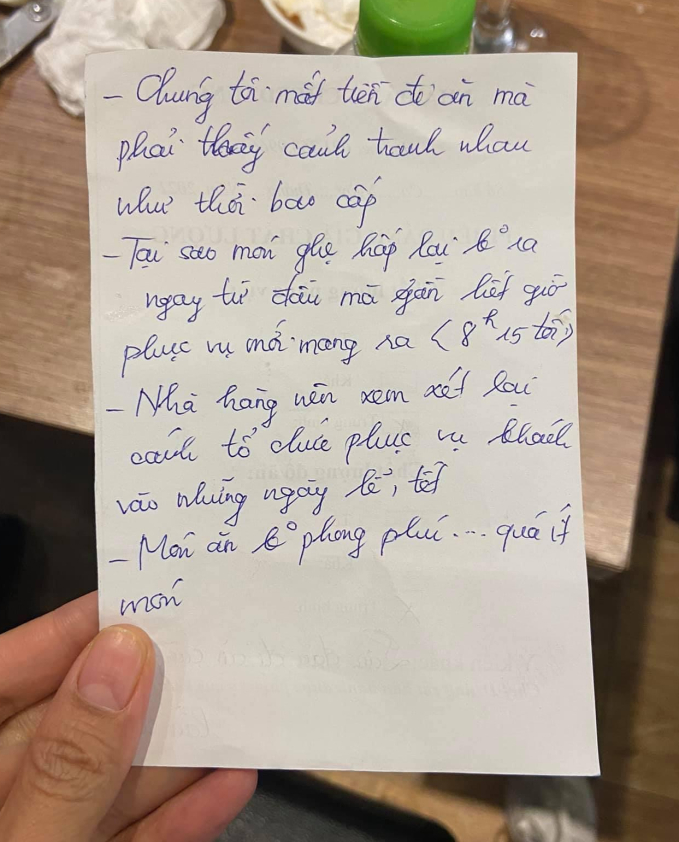 - Chúng tôi mất tiền để ăn mà
phải thấy cảnh tranh nhau
như thời bao cấp
- Tại sao món ghẹ hấp lại k° ra
ngay từ đầu mà gần hết giờ
phục vụ mới mang ra (8h15 tối)
- Nhà hàng nên xem xét lại
cách tổ chức phục vụ khách
vào những ngày lễ, tết
- Món ăn k° phong phú... quá ít
món